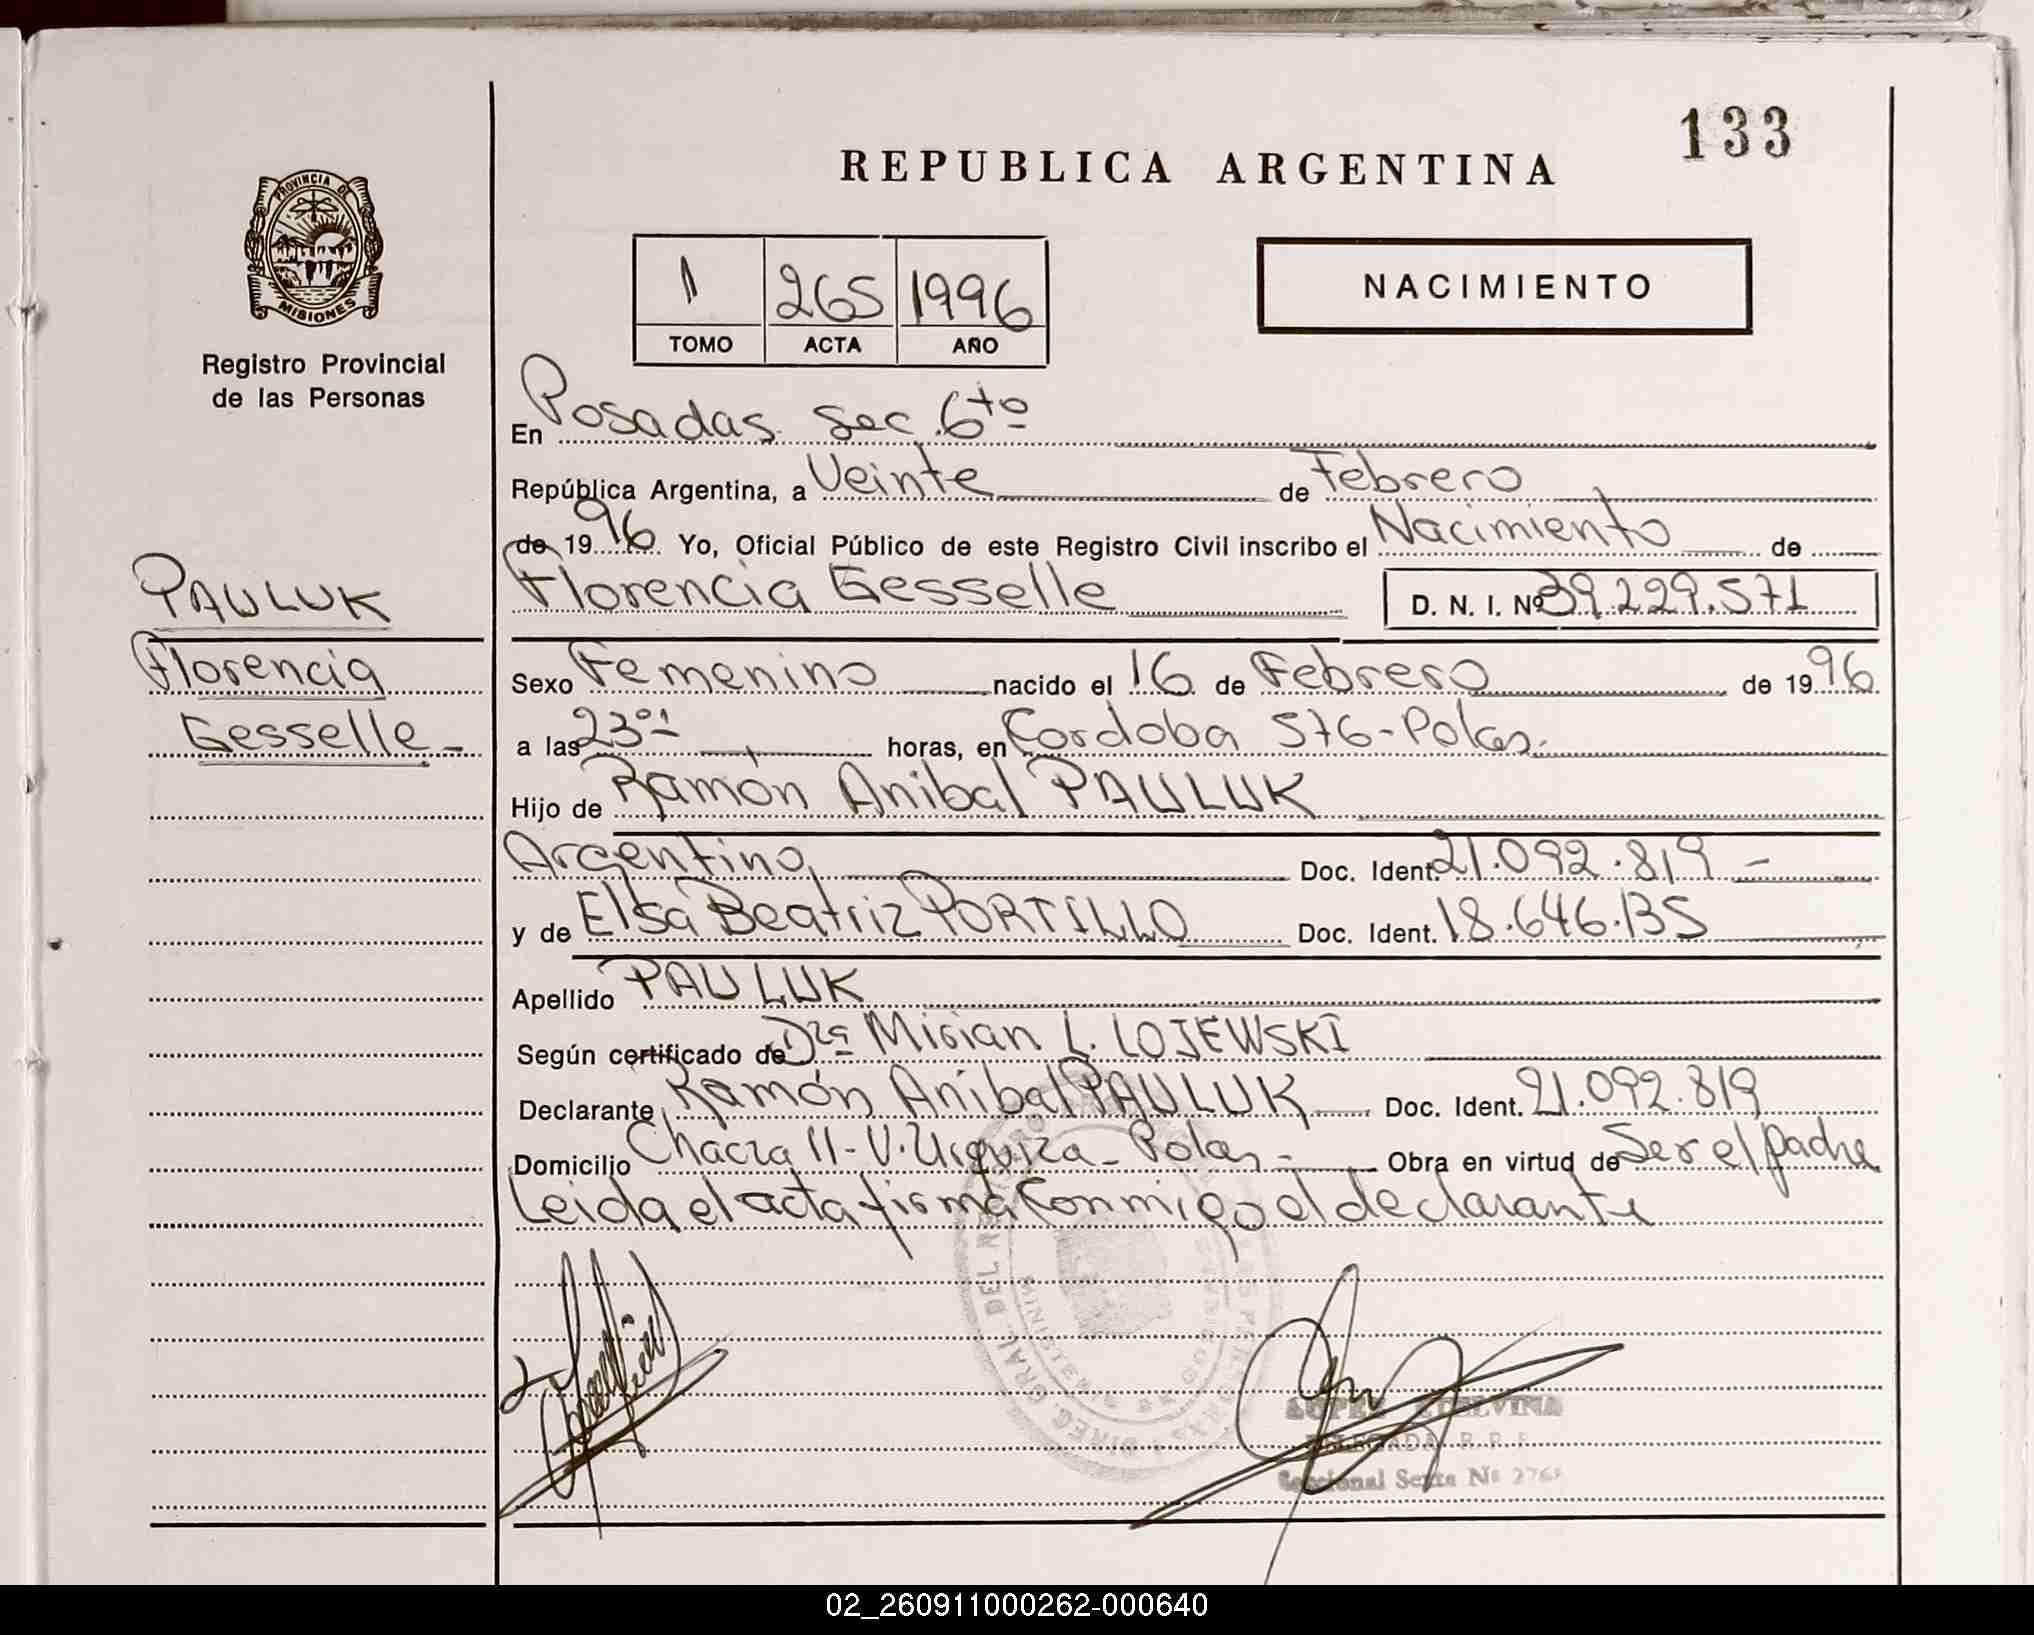 133
REPUBLICA ARGENTINA
PROVINCIA DE
MISIONES
Registro Provincial
de las Personas
1 265 1996
TOMO ACTA AÑO
NACIMIENTO
En Posadas sec. 6to
República Argentina, a Veinte de Febrero
de 1996 Yo, Oficial Público de este Registro Civil inscribo el Nacimiento de
Florencia Gesselle D. N. I. Nº 39.229.571
PAULUK
Florencia
Gesselle
Sexo Femenino nacido el 16 de Febrero de 1996
a las 23 horas, en Cordoba 576-Pdas.
Hijo de Ramón Anibal PAULUK
Argentino Doc. Ident. 21.092.819
y de Elsa Beatriz PORTILLO Doc. Ident. 18.646.135
Apellido PAULUK
Según certificado de Dra Mirian L. LOJEWSKI
Declarante Ramón Anibal PAULUK Doc. Ident. 21.092.819
Domicilio Chacra 11-V. Urquiza-Pdas- Obra en virtud de Ser el padre
Leida el acta firma conmigo el declarante
LOPEZ ETELVINA
DELEGADA R. P. P.
Seccional Sexta Nº
02_260911000262-000640